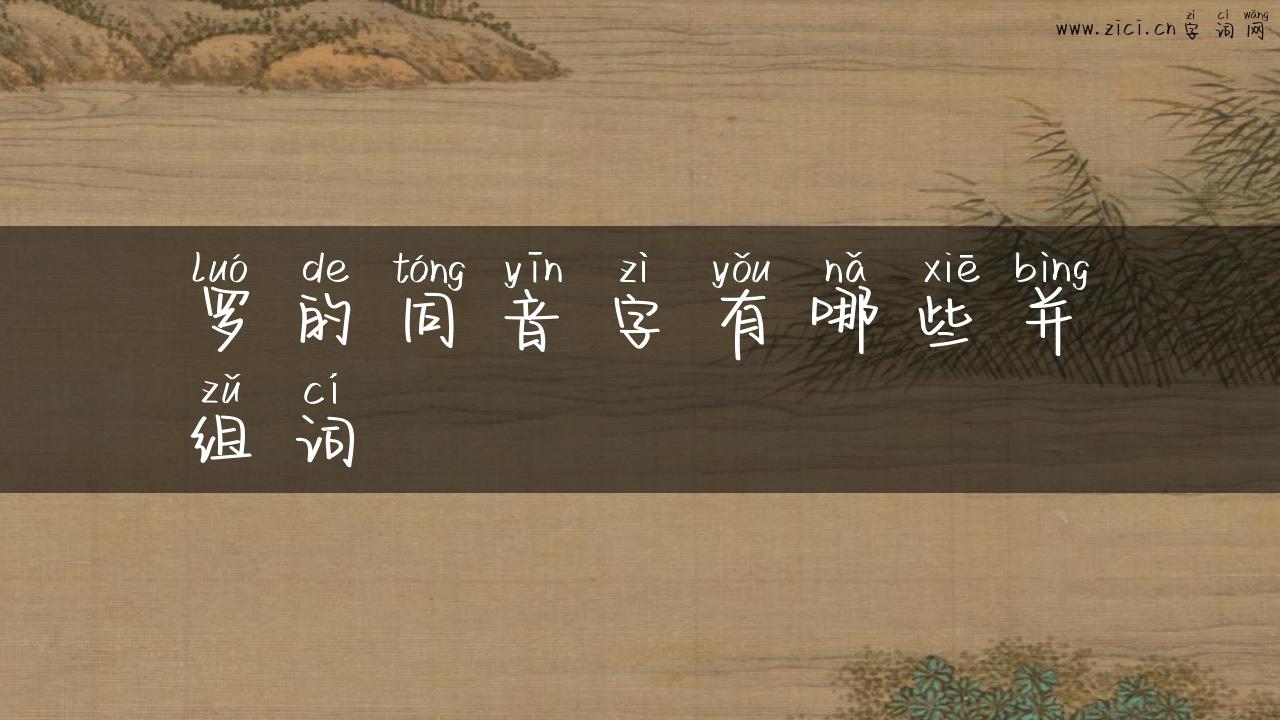 zì cí wǎng
www.zici.cn 字词网
luó de tóng yīn zì yǒu nǎ xiē bìng
罗的同音字有哪些并
zǔ cí
组词